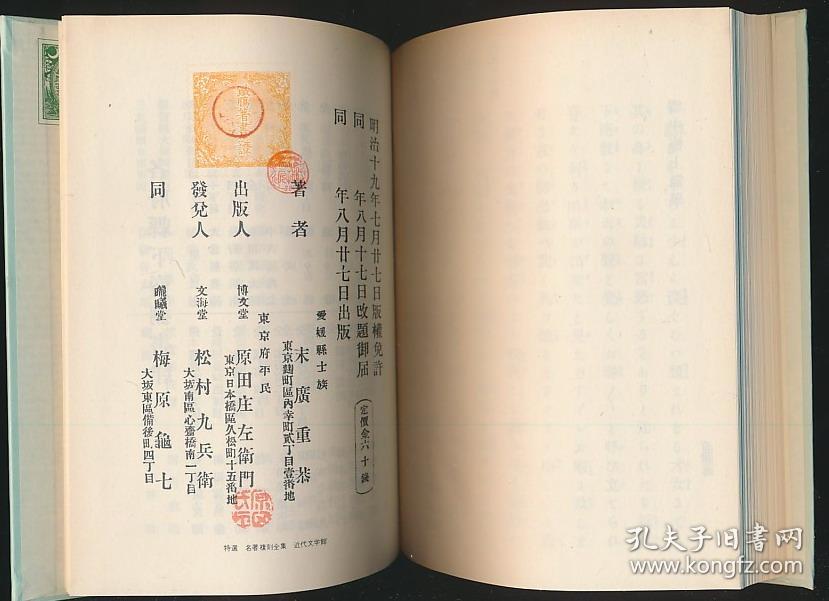 明治十九年七月廿七日版權免許
同　年八月十七日改題御届
同　年八月廿七日出版
(定價金六十錢)
愛媛縣士族
著者　末廣重恭
東京麹町區內幸町貳丁目壹番地
東京府平民
出版人　博文堂　原田庄左衞門
東京日本橋區久松町十五番地
發兌人　文海堂　松村九兵衞
大坂南區心齋橋南一丁目
同　梅原龜七
大坂東區備後町四丁目
特選　名著複刻全集　近代文学館
孔夫子旧书网
www.kongfz.com